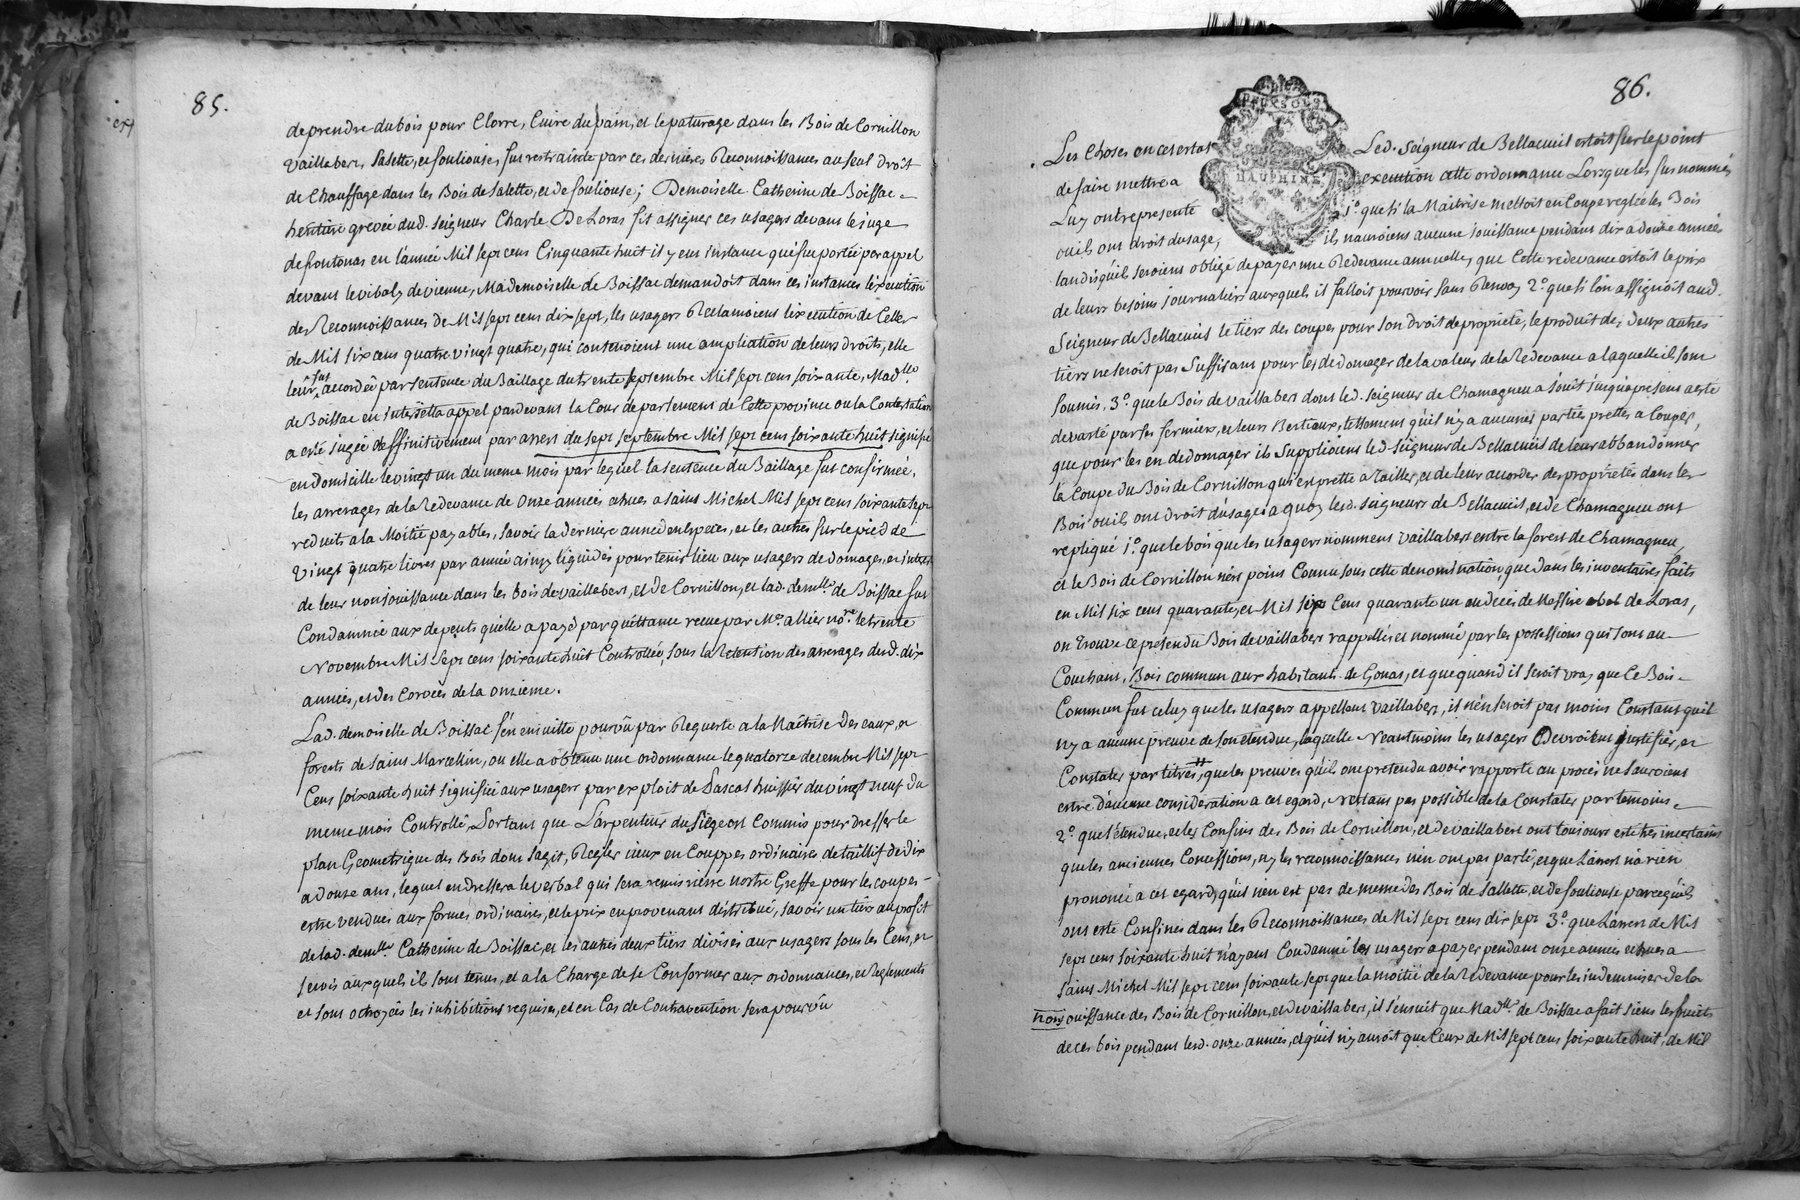 85.
de prendre du bois pour Clorre, Cuire du pain, et le paturage dans les Bois de Cornillon
Vaillabert, Salette, et fouliouse, fut restrainte par ces dernieres Reconnoissances au seul droit
de Chauffage dans les Bois de Salette, et de fouliouse; Demoiselle Catherine de Boissac
heritiere grevée dud. seigneur Charle De Loras fit assigner ces usagers devant le juge
de fontonas en l'année Mil sept cens Cinquante huit il y eut instance qui fut portée par appel
devant le vibaly de vienne, Mademoiselle de Boissac demandoit dans ces instances l'execution
des Reconnoissances de Mil sept cens dix sept, les usagers Reclamoient l'execution de Celles
de Mil six cens quatre vingt quatre, qui contenoient une ampliation de leurs droits, elle
leur fut accordée par sentence du Baillage du trente septembre Mil sept cens soixante, Mad.lle
de Boissac en interjetta appel pardevant la Cour de parlement de Cette province ou la Contestation
a esté jugée deffinitivement par arrest du sept septembre Mil sept cens soixante huit signifié
en domicille le vingt un du meme mois par lequel la sentence du Baillage fut confirmée,
les arrerages de la Redevance de Onze années echues a saint Michel Mil sept cens soixante sept
reduits a la Moitié payables, savoir la derniere année en especes, et les autres sur le pied de
Vingt quatre livres par année ainsy liquidés pour tenir lieu aux usagers de domages, et interets
de leur non jouissance dans les bois de vaillabert, et de Cornillon, et lad. demlle. de Boissac fut
Condamnée aux depents qu'elle a payé par quittance recue par Me. allier nore. le trente
Novembre Mil sept cens soixante huit Controllée, sous la Retention des arrerages desd. dix
années, et des Corvées de la onzieme.
Lad. demoiselle de Boissac s'en ensuitte pourvûe par Requeste a la Maîtrise des eaux, et
forests de saint Marcellin, ou elle a obtenu une ordonnance le quatorze decembre Mil sept
Cens soixante huit signifiée aux usagers par exploit de Pascal huissier du vingt neuf du
meme mois Controllé, Portant que L'arpenteur du Siege est Commis pour dresser le
plan Geometrique des Bois dont s'agit, Regler iceux en Couppes ordinaires de taillif de dix
a douze ans, lequel en dressera le verbal qui sera remis riere nostre Greffe pour les coupes
estre vendues aux formes ordinaires, et le prix en provenant distribué, savoir un tiers au profit
de lad. demlle. Catherine de Boissac, et les autres deux tiers divisés aux usagers sous les Cens, et
servis aux quels il sont tenus, et a la Charge de se Conformer aux ordonnances, et Reglements
et sont octroyées les inhibitions requises, et en Cas de Contravention sera pourvû
86.
DAUPHINÉ
Les Choses en cet estat Led. Seigneur de Bellacueil estoit sur le point
de faire mettre a execution cette ordonnance Lorsque les sus nommés
Luy ont representé 1.o que si la Maitrise mettoit en Coupe reglée les Bois
ou ils ont droit dusage, ils n'auroient aucune jouissance pendant dix a douze années
tandisqu'il seroient obligé de payer une Redevance annuelle, que Cette redevance estoit le prix
de leurs besoins journaliers auxquels il falloit pourvoir sans Renvoy 2.o que si l'on assignoit aud.
Seigneur de Bellacueil le tiers des coupes pour son droit de proprieté, le produit des deux autres
tiers ne seroit pas Suffisant pour les dedomager de la valeur de la Redevance a laquelle il sont
soumis, 3.o que le Bois de Vaillabert dont led. seigneur de Chamagneu a jouit jusqu'a present a esté
devasté par ses fermiers, et leurs Bestiaux, tellement qu'il n'y a aucunes parties prettes a Couper,
que pour les en dedomager ils Supplioient led. seigneur de Bellacueil de leur abbandonner
la Coupe du Bois de Cornillon qui est prette a tailler, et de leur accorder des proprietés dans les
Bois ou ils ont droit dusage, a quoy lesd. seigneurs de Bellacueil, et de Chamagneu ont
repliqué 1.o que le bois que les usagers nomment Vaillabert entre la forest de Chamagneu,
et le Bois de Cornillon n'est point Connu sous cette denomination, que dans les inventaires faits
en Mil six cens quarante, et Mil six Cens quarante un au decés de Messire abel de Loras,
on trouve ce pretendu Bois de vaillabert rappellés et nommé par les possessions qui sont au
Couchant, Bois commun aux habitants de Gonas, et que quand il seroit vray que Ce Bois
Commun fut celuy que les usagers appellent Vaillabert, il n'en seroit pas moins Constant qu'il
n'y a aucune preuve de son etendue, laquelle Neantmoins les usagers Devroient justifier, et
Constater par titres, que les preuves qu'ils ont pretendu avoir rapporté au procés ne sauroient
estre d'aucune consideration a cet egard, n'estant pas possible de la Constater par temoins
2.o que l'etendue, et les Confins des Bois de Cornillon, et de vaillabert ont toujours esté tres incertains
que les anciennes Concessions, ny les reconnoissances n'en ont pas parlé, et que L'arrest n'a rien
prononcé a cet egard, qu'il n'en est pas de meme des Bois de Sallette, et de fouliouse parce qu'ils
ont esté Confinés dans les Reconnoissances de Mil sept cens dix sept 3.o que L'arrest de Mil
sept cens soixante huit n'ayant Condamné les usagers a payer pendant onze années echues a
saint Michel Mil sept cens soixante sept que la moitié de la Redevance pour les indemniser de la
non jouissance des Bois de Cornillon, et de vaillabert, il s'ensuit que Madlle. de Boissac a fait siens les fruits
de ces bois pendant lesd. onze années, et qu'il n'y auroit que Ceux de Mil sept cens soixante huit, de Mil